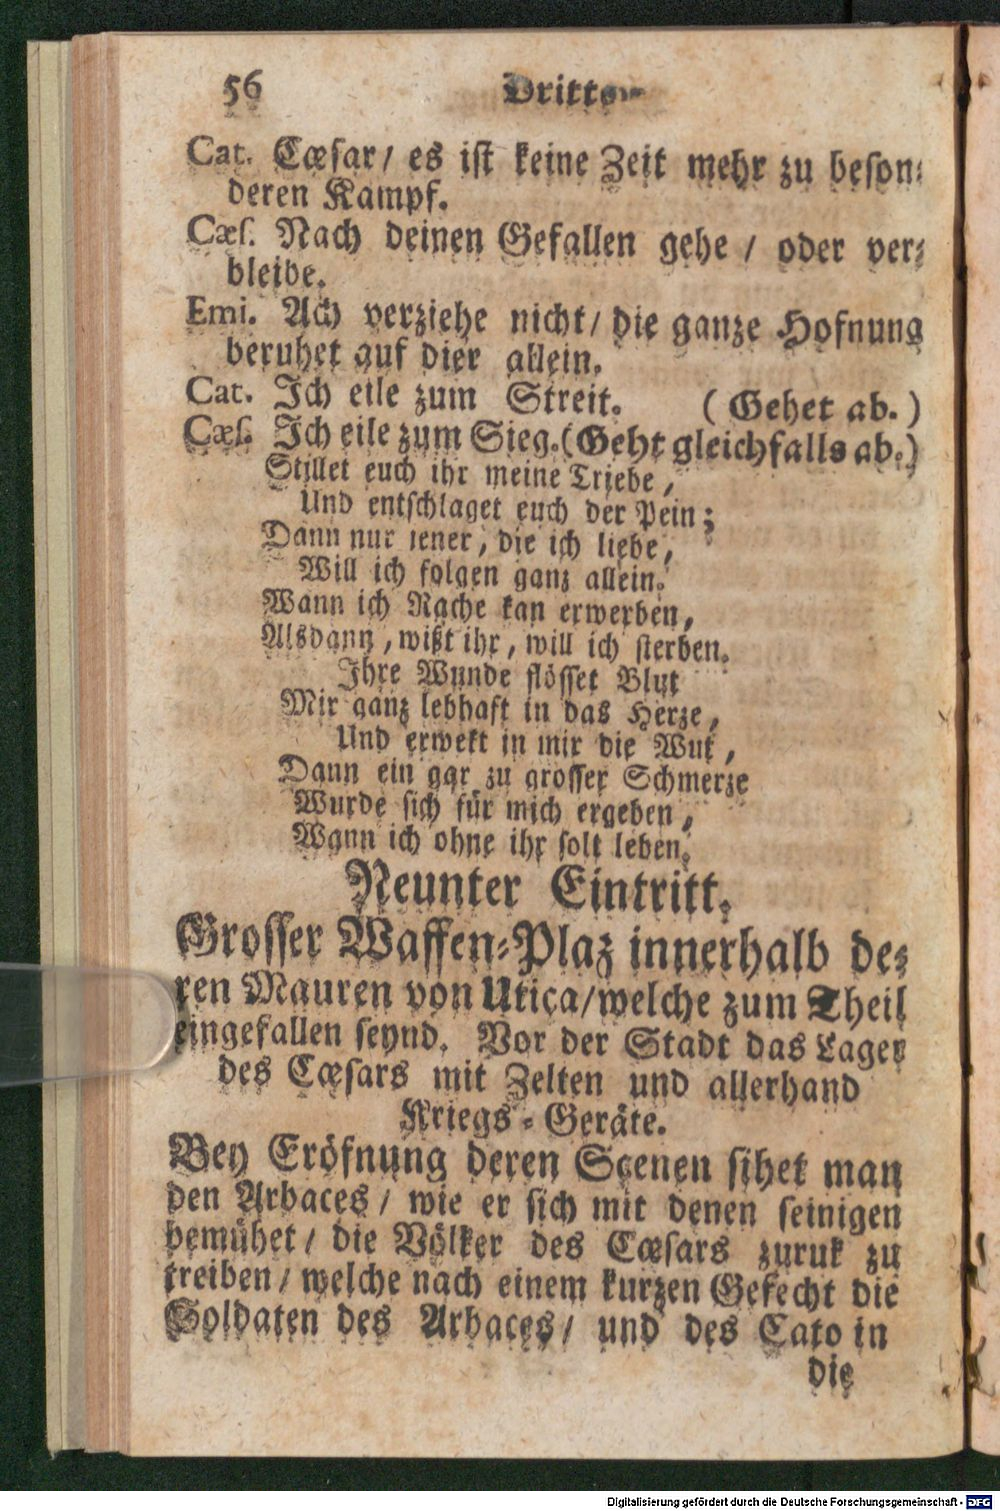 56 Dritte
Cat. Cæsar / es ist keine Zeit mehr zu beson⸗
deren Kampf.
Cæs. Nach deinen Gefallen gehe / oder ver⸗
bleibe.
Emi. Ach verziehe nicht / die ganze Hofnung
beruhet auf dier allein.
Cat. Ich eile zum Streit. (Gehet ab.)
Cæs. Ich eile zum Sieg. (Geht gleichfalls ab.)
Stillet euch ihr meine Triebe,
Und entschlaget euch der Pein;
Dann nur jener, die ich liebe,
Will ich folgen ganz allein.
Wann ich Rache kan erwerben,
Alsdann, wißt ihr, will ich sterben.
Ihre Wunde flösset Blut
Mir ganz lebhaft in das Herze,
Und erwekt in mir die Wut,
Dann ein gar zu grosser Schmerze
Wurde sich für mich ergeben,
Wann ich ohne ihr solt leben.
Neunter Eintritt.
Grosser Waffen⸗Plaz innerhalb de⸗
ren Mauren von Utica / welche zum Theil
eingefallen seynd. Vor der Stadt das Lager
des Cæsars mit Zelten und allerhand
Kriegs⸗Geräte.
Bey Eröfnung deren Scenen sihet man
den Arbaces / wie er sich mit denen seinigen
bemühet / die Völker des Cæsars zuruk zu
treiben / welche nach einem kurzen Gefecht die
Soldaten des Arbaces / und des Cato in
die
Digitalisierung gefördert durch die Deutsche Forschungsgemeinschaft - DFG